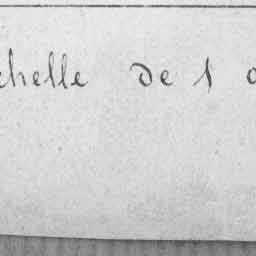 chelle de 1 a